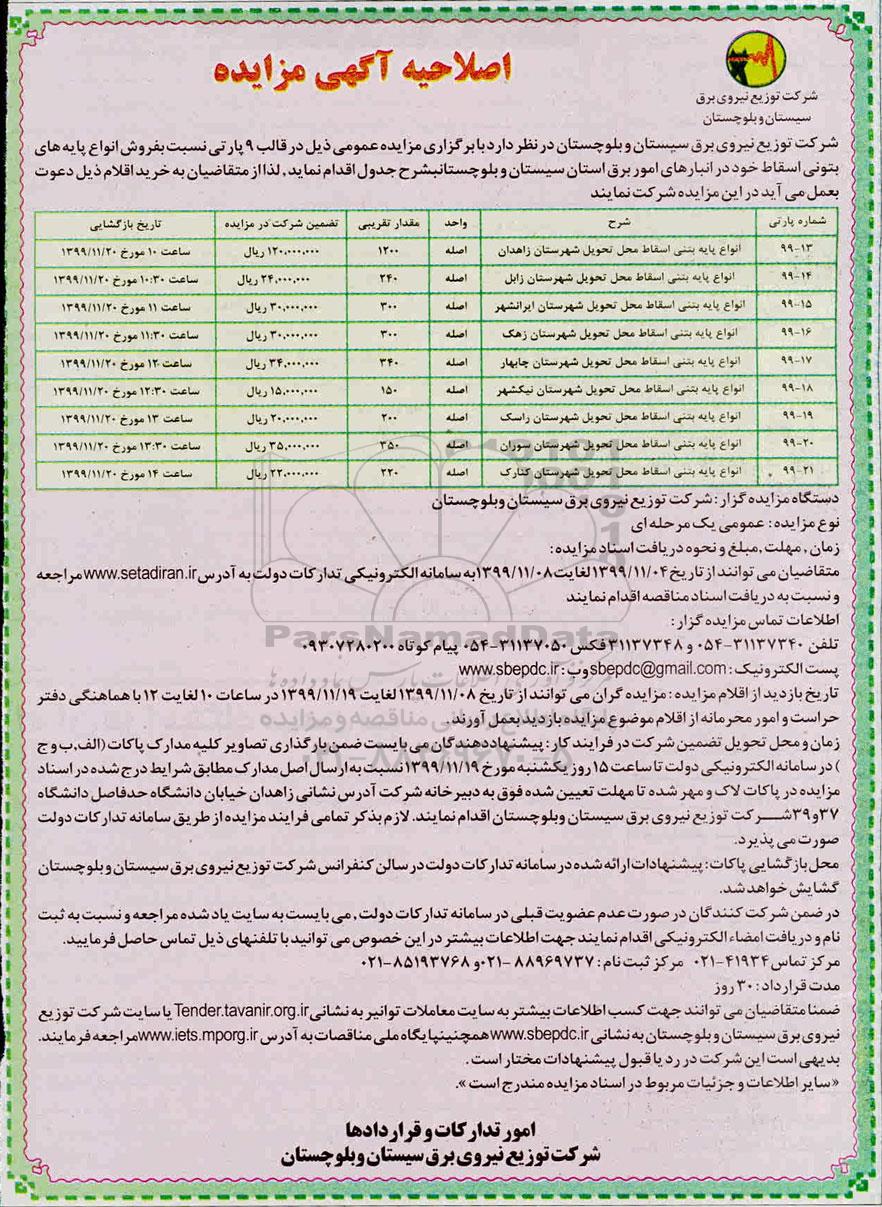 اصلاحیه آگهی مزایده
شرکت توزیع نیروی برق
سیستان و بلوچستان
شرکت توزیع نیروی برق سیستان و بلوچستان در نظر دارد با برگزاری مزایده عمومی ذیل در قالب ۹ پارتی نسبت بفروش انواع پایه های
بتونی اسقاط خود در انبارهای امور برق استان سیستان و بلوچستانبشرح جدول اقدام نماید, لذا از متقاضیان به خرید اقلام ذیل دعوت
بعمل می آید در این مزایده شرکت نمایند
شماره پارتی شرح واحد مقدار تقریبی تضمین شرکت در مزایده تاریخ بازگشایی
۹۹-۱۳ انواع پایه بتنی اسقاط محل تحویل شهرستان زاهدان اصله ۱۲۰۰ ۱۲۰,۰۰۰,۰۰۰ ریال ساعت ۱۰ مورخ ۱۳۹۹/۱۱/۲۰
۹۹-۱۴ انواع پایه بتنی اسقاط محل تحویل شهرستان زابل اصله ۲۴۰ ۲۴,۰۰۰,۰۰۰ ریال ساعت ۱۰:۳۰ مورخ ۱۳۹۹/۱۱/۲۰
۹۹-۱۵ انواع پایه بتنی اسقاط محل تحویل شهرستان ایرانشهر اصله ۳۰۰ ۳۰,۰۰۰,۰۰۰ ریال ساعت ۱۱ مورخ ۱۳۹۹/۱۱/۲۰
۹۹-۱۶ انواع پایه بتنی اسقاط محل تحویل شهرستان زهک اصله ۳۰۰ ۳۰,۰۰۰,۰۰۰ ریال ساعت ۱۱:۳۰ مورخ ۱۳۹۹/۱۱/۲۰
۹۹-۱۷ انواع پایه بتنی اسقاط محل تحویل شهرستان چابهار اصله ۳۴۰ ۳۴,۰۰۰,۰۰۰ ریال ساعت ۱۲ مورخ ۱۳۹۹/۱۱/۲۰
۹۹-۱۸ انواع پایه بتنی اسقاط محل تحویل شهرستان نیکشهر اصله ۱۵۰ ۱۵,۰۰۰,۰۰۰ ریال ساعت ۱۲:۳۰ مورخ ۱۳۹۹/۱۱/۲۰
۹۹-۱۹ انواع پایه بتنی اسقاط محل تحویل شهرستان راسک اصله ۲۰۰ ۲۰,۰۰۰,۰۰۰ ریال ساعت ۱۳ مورخ ۱۳۹۹/۱۱/۲۰
۹۹-۲۰ انواع پایه بتنی اسقاط محل تحویل شهرستان سوران اصله ۳۵۰ ۳۵,۰۰۰,۰۰۰ ریال ساعت ۱۳:۳۰ مورخ ۱۳۹۹/۱۱/۲۰
۹۹-۲۱ انواع پایه بتنی اسقاط محل تحویل شهرستان کنارک اصله ۲۲۰ ۲۲,۰۰۰,۰۰۰ ریال ساعت ۱۴ مورخ ۱۳۹۹/۱۱/۲۰
دستگاه مزایده گزار: شرکت توزیع نیروی برق سیستان وبلوچستان
نوع مزایده: عمومی یک مرحله ای
زمان, مهلت, مبلغ و نحوه دریافت اسناد مزایده:
متقاضیان می توانند از تاریخ ۱۳۹۹/۱۱/۰۴ لغایت ۱۳۹۹/۱۱/۰۸ به سامانه الکترونیکی تدارکات دولت به آدرس www.setadiran.ir مراجعه
و نسبت به دریافت اسناد مناقصه اقدام نمایند
اطلاعات تماس مزایده گزار:
تلفن ۳۱۱۳۷۳۴۰-۰۵۴ و ۳۱۱۳۷۳۴۸ فکس ۳۱۱۳۷۰۵۰-۰۵۴ پیام کوتاه ۰۹۳۰۷۲۸۰۲۰۰
پست الکترونیک: sbepdc@gmail.com وب: www.sbepdc.ir
تاریخ بازدید از اقلام مزایده: مزایده گران می توانند از تاریخ ۱۳۹۹/۱۱/۰۸ لغایت ۱۳۹۹/۱۱/۱۹ در ساعات ۱۰ لغایت ۱۲ با هماهنگی دفتر
حراست و امور محرمانه از اقلام موضوع مزایده بازدید بعمل آورند.
زمان و محل تحویل تضمین شرکت در فرایند کار: پیشنهاددهندگان می بایست ضمن بارگذاری تصاویر کلیه مدارک پاکات (الف, ب و ج
) در سامانه الکترونیکی دولت تا ساعت ۱۵ روز یکشنبه مورخ ۱۳۹۹/۱۱/۱۹ نسبت به ارسال اصل مدارک مطابق شرایط درج شده در اسناد
مزایده در پاکات لاک و مهر شده تا مهلت تعیین شده فوق به دبیرخانه شرکت آدرس نشانی زاهدان خیابان دانشگاه حدفاصل دانشگاه
۳۷و۳۹ شرکت توزیع نیروی برق سیستان وبلوچستان اقدام نمایند. لازم بذکر تمامی فرایند مزایده از طریق سامانه تدارکات دولت
صورت می پذیرد.
محل بازگشایی پاکات: پیشنهادات ارائه شده در سامانه تدارکات دولت در سالن کنفرانس شرکت توزیع نیروی برق سیستان وبلوچستان
گشایش خواهد شد.
در ضمن شرکت کنندگان در صورت عدم عضویت قبلی در سامانه تدارکات دولت, می بایست به سایت یاد شده مراجعه و نسبت به ثبت
نام و دریافت امضاء الکترونیکی اقدام نمایند جهت اطلاعات بیشتر در این خصوص می توانید با تلفنهای ذیل تماس حاصل فرمایید.
مرکز تماس ۴۱۹۳۴-۰۲۱ مرکز ثبت نام: ۸۸۹۶۹۷۳۷-۰۲۱ و ۸۵۱۹۳۷۶۸-۰۲۱
مدت قرارداد: ۳۰ روز
ضمنا متقاضیان می توانند جهت کسب اطلاعات بیشتر به سایت معاملات توانیر به نشانی Tender.tavanir.org.ir یا سایت شرکت توزیع
نیروی برق سیستان و بلوچستان به نشانی www.sbepdc.ir همچنینپایگاه ملی مناقصات به آدرس www.iets.mporg.ir مراجعه فرمایند.
بدیهی است این شرکت در رد یا قبول پیشنهادات مختار است.
«سایر اطلاعات و جزئیات مربوط در اسناد مزایده مندرج است».
امور تدارکات و قراردادها
شرکت توزیع نیروی برق سیستان و بلوچستان
ParsNamadData